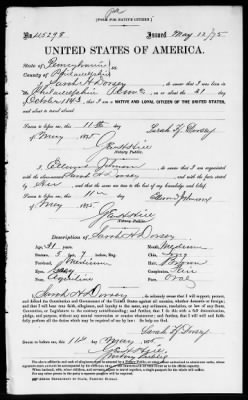 [FORM FOR NATIVE CITIZEN.]
No. 45298 Issued May 12/75
UNITED STATES OF AMERICA.
State of Pennsylvania
County of Philadelphia
I, Sarah H Dorsey, do swear that I was born in
Philadelphia on or about the 21
October 1843, that I am a NATIVE AND LOYAL CITIZEN OF THE UNITED STATES,
and about to travel abroad.
Sworn to before me, this 11th day Sarah H Dorsey
of May 1875
Notary Public.
I, Johnson, do swear that I am acquainted
with the above-named Sarah H Dorsey and with the facts above stated
by her and that the same are true to the best of my knowledge and belief.
Sworn to before me, this 11 day Johnson
of May 1875
Notary Public.
Description of Sarah H Dorsey
Age: 31 years. Mouth: Medium
Stature: 5 feet 7 inches Chin:
Forehead: Medium Hair: Brown
Eyes: Complexion: Fair
Nose: Aquiline Face: Oval
I, Sarah H Dorsey, do solemnly swear that I will support, protect,
and defend the Constitution and Government of the United States against all enemies, whether domestic or foreign;
and that I will bear true faith, allegiance, and loyalty to the same, any ordinance, resolution, or law of any State,
Convention, or Legislature to the contrary notwithstanding; and further, that I do this with a full determination,
pledge, and purpose, without any mental reservation or evasion whatsoever; and further, that I will well and faithfully
perform all the duties which may be required of me by law: So help me God.
Sarah H Dorsey
Sworn to before me, this 11th day
of May 1875
Notary Public